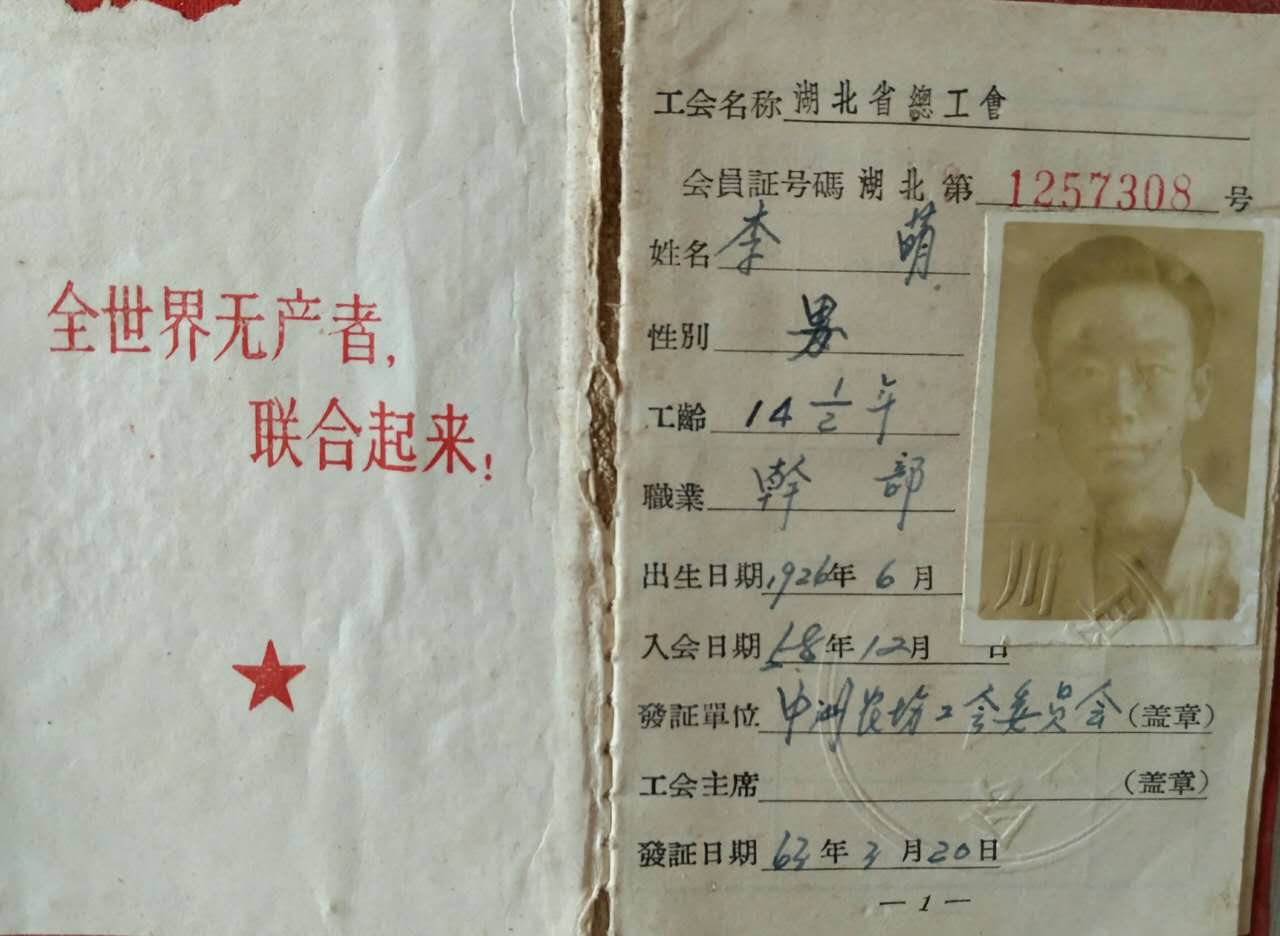 全世界无产者，
联合起来！
工会名称 湖北省總工會
会員証号碼 湖北 第 1257308 号
姓名 李 萌
性別 男
工齡 14 1/2 年
職業 幹 部
出生日期 1926年 6 月
入会日期 58年12月 日
發証單位 中洲农场工会委员会(盖章)
工会主席 (盖章)
發証日期 63年3月20日
— 1 —